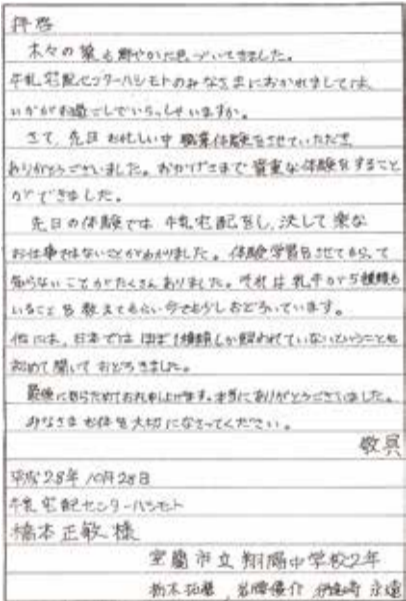 拝啓
木々の葉も鮮やかに色づいてきました。
牛乳宅配センターハシモトのみなさまにおかれましては、
いかがお過ごしでいらっしゃいますか。
さて、先日お忙しい中職業体験をさせていただき
ありがとうございました。おかげさまで貴重な体験をすること
ができました。
先日の体験では牛乳宅配をし、決して楽な
お仕事ではないことがわかりました。体験学習をさせてもらって
知らないことがたくさんありました。それは乳牛が5種類も
いることを教えてもらい今でも少しおどろいています。
他には、日本ではほぼ1種類しか飼われていないということも
初めて聞いておどろきました。
最後にあらためてお礼申し上げます。本当にありがとうございました。
みなさまお体を大切になさってください。
敬具
平成28年10月28日
牛乳宅配センターハシモト
橋本正敏様
室蘭市立翔陽中学校2年
優介 永遠